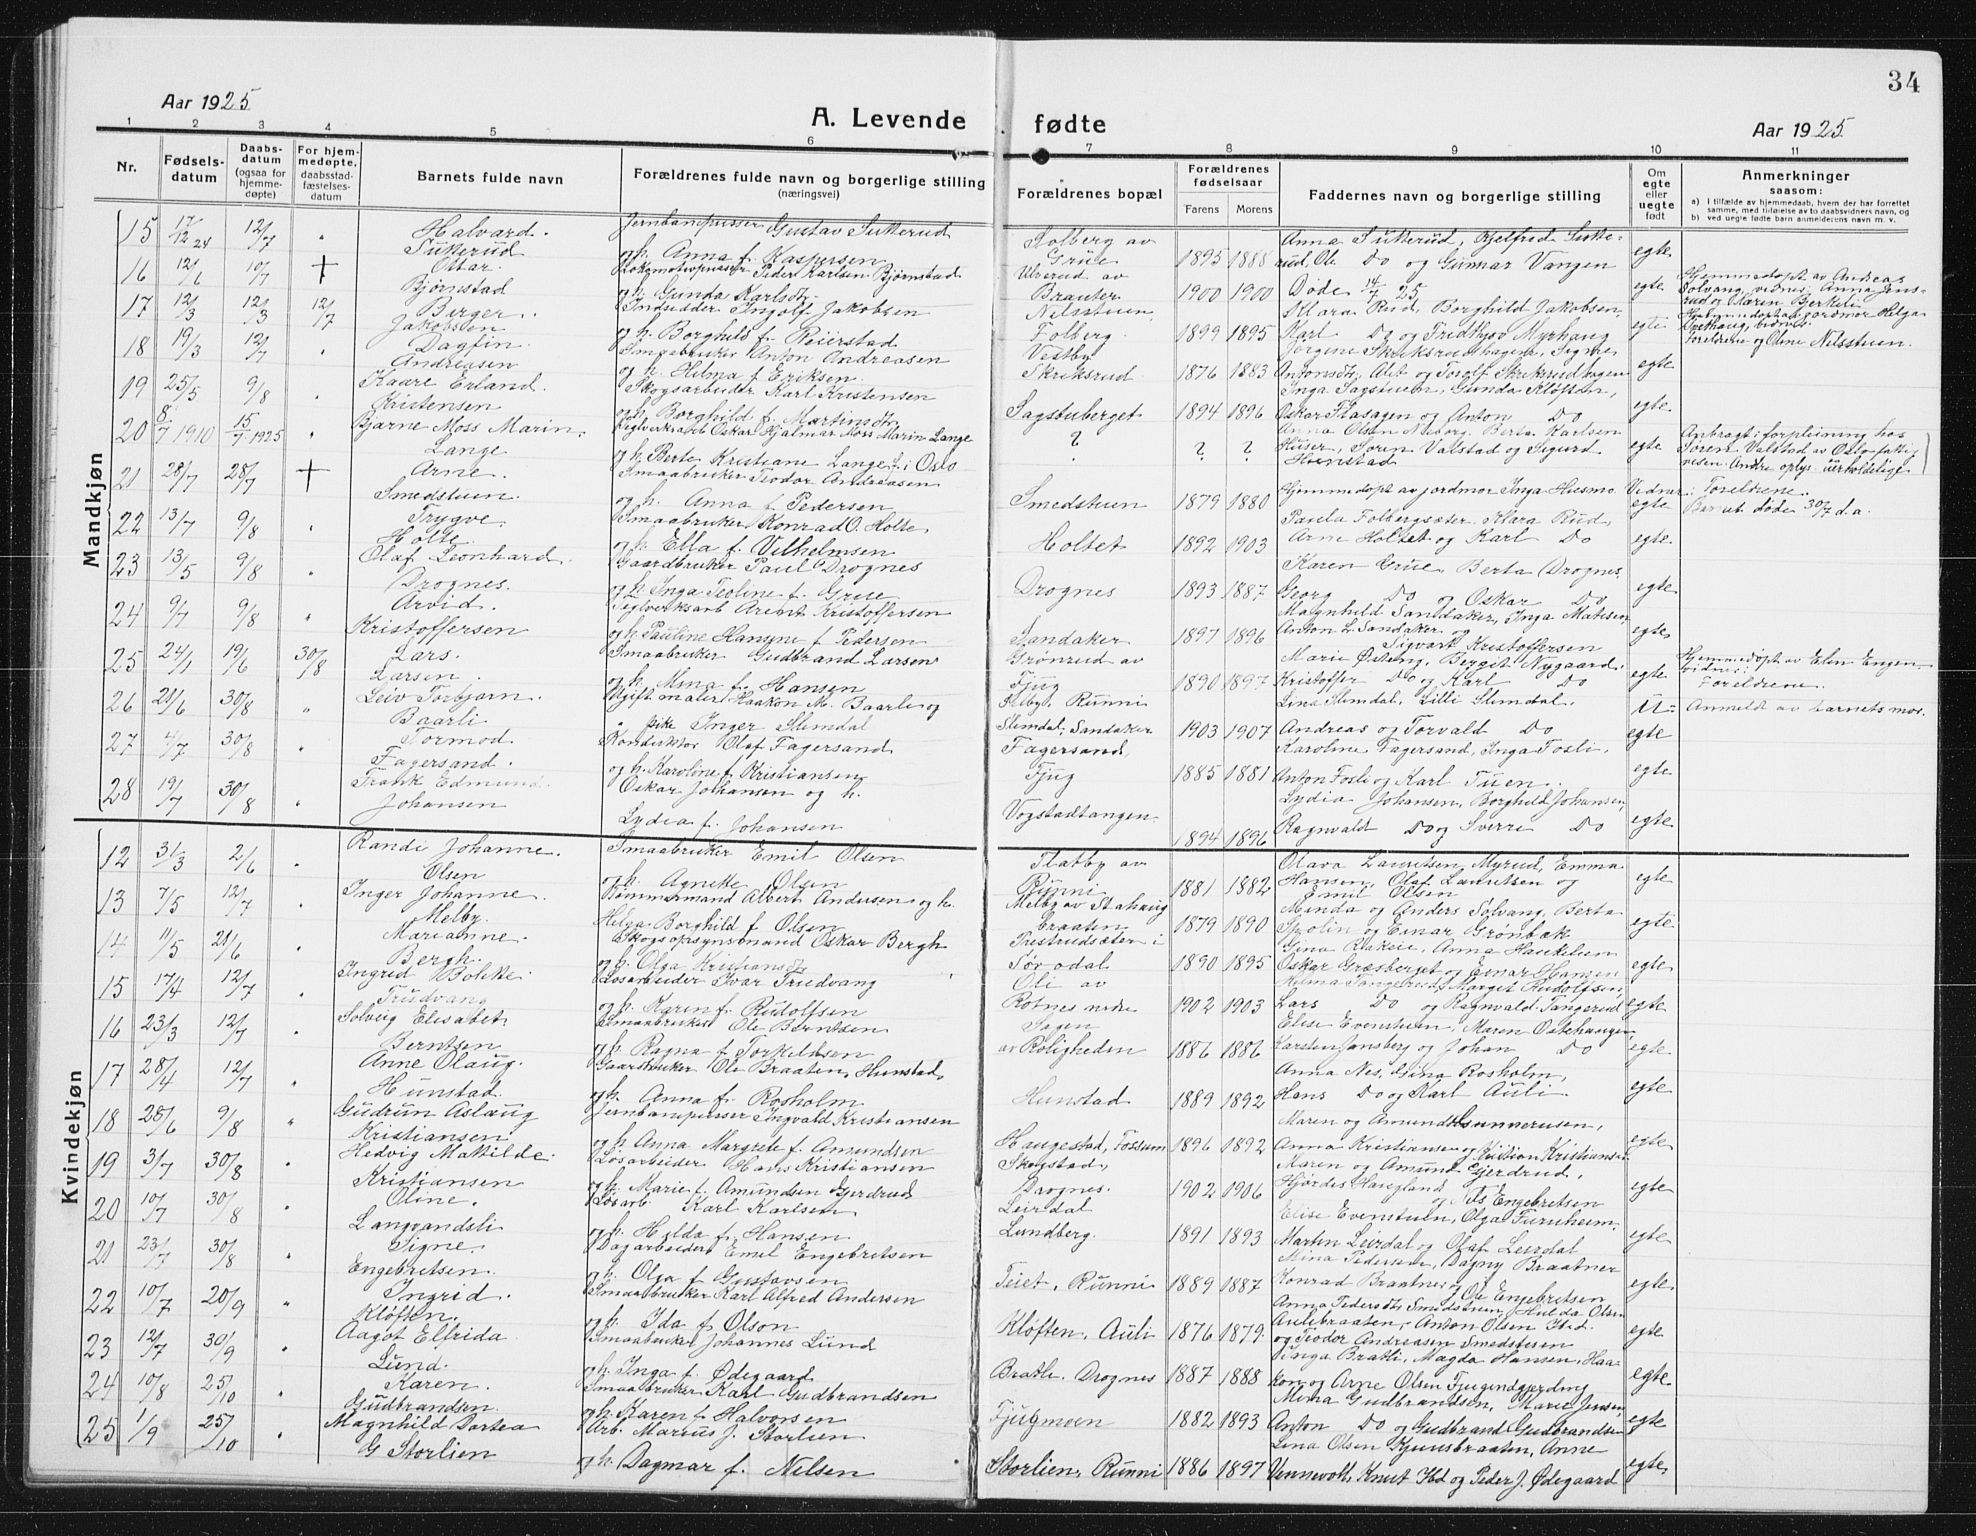 34
Aar 1925
A. Levende fødte
Aar 1925
1 2 3 4 5 6 7 8 9 10 11
Nr.
Fødsels-
datum
Daabs-
datum
(ogsaa for
hjemme-
døpte)
For hjem-
medøpte,
daabsstad-
fæstelses-
datum
Barnets fulde navn
Forældrenes fulde navn og borgerlige stilling
(næringsvei)
Forældrenes bopæl
Forældrenes
fødselsaar
Farens Morens
Faddernes navn og borgerlige stilling
Om
egte
eller
uegte
født
Anmerkninger
saasom:
a) I tilfælde av hjemmedaab, hvem der har forrettet
samme, med tilføielse av to daabsvidners navn, og
b) ved uegte født barn anmelderens navn m. v.
Mandkjøn
15 17/12 24 12/7 " Halvard. Jernbanepusser Gustav Sukkerud
Sukkerud og h. Anna f. Kaspersen Solberg av Grüe 1895 1888 Anna Sukkerud, Kjelfred Sukke-
rud, Ole Do og Gunnar Vangen egte
16 12/6 10/7 + Ottar. Lokomotivpusser Peder Karlsen Bjørnstad
Bjørnstad og h. Gunda Karlsdtr. Ulverud av Brauter 1900 1900 Døde 14/7 25. egte
17 12/3 12/3 12/7 Birger. Indseiader Ingolf Jakobsen
Jakobsen og h. Borghild f. Reierstad Nilsstuen, Folberg. 1899 1895 Klara Rud, Borghild Jakobsen,
Karl Do og Fridthjov Myrhaug egte Hjemmedøpt av Andreas
Solvang, vidner: Anna Jens-
rud og Maren Berkeli
Hjemmedøpt av jordmor Helga
Forældrene og Oline Nilsstuen.
18 19/3 12/7 " Dagfin. Smaabruker Anton Andreasen
Andreasen og h. Helma f. Eriksen. Vestby Skriksrud 1876 1883 Jørgine Skriksrudhagen, Signe
Antonsdtr, Alet og Torolf Skriksrudhagen egte
19 25/5 9/8 " Kaare Erland. Skogsarbeider Karl Kristensen
Kristensen og h. Borghild f. Martinsdtr. Sagstuberget 1894 1896 Inga Sagstuen, Gunda Kløften,
Oskar Stasagen og Anton Do egte
20 8/7 1910 15/7 1925 " Bjarne Moss Marin. Teglverksarb Oskar Hjalmar Moss Marin Lange
Lange og h. Berte Kristiane Lange f. i Oslo ? ? ? Anna Olsen Neberg, Berta Karlsen
Huser, Søren Valstad og Sigurd
Hornstad egte Anbragt i forpleining hos
Søren Valstad av Oslo fattig
vesen. Andre oplys. uerholdelige
21 28/7 28/7 + Arne. Smaabruker Teodor Andreasen
Smedstuen. og h. Anna f. Pedersen Smedstuen 1879 1880 Hjemmedøpt av jordmor Inga Husmo. Vidner: Foreldrene.
egte Barnet døde 30/7 d.a.
22 13/7 9/8 " Trygve. Smaabruker Konrad O. Holte,
Holte. og h. Ella f. Vilhelmsen Holtet 1892 1903 Paula Folbergsæter. Klara Rud,
Arne Holtet og Karl Do egte.
23 13/5 9/8 " Olaf Leonhard. Gaardbruker Paul Drognes
Drognes. og h. Inga Teoline f. Grue Drognes 1893 1887 Karen Grue, Berta Drognes,
Georg Do og Oskar Do egte
24 9/7 9/8 " Arvid. Teglverksarb Arent Kristoffersen
Kristoffersen og h. Pauline Hansine f. Pedersen Sandaker 1897 1896 Magnhild Sandaker, Inga Matisen,
Anton L. Sandaker og Sigvart Kristoffersen egte
25 24/1 19/6 30/8 Lars. Smaabruker Gudbrand Larsen
Larsen. og h. Mina f. Hansen Grønrud av Fjug 1890 1897 Marie Østeng, Bergit Nygaard,
Kristoffer Do og Karl Do egte Hjemmedøpt av Elen Engen
vidner: Foreldrene.
26 21/6 30/8 " Leiv Torbjørn. Ugift maler Haakon M. Baarli og
Baarli " pike Inger Slemdal Fleby, Runni
Slemdal, Sandaker 1903 1907 Lina Slemdal, Lilli Slemdal,
Andreas og Torvald Do U: Anmeldt av barnets mor.
27 4/7 30/8 " Tormod. Konduktør Olaf Fagersand
Fagersand. og h. Karoline f. Kristiansen Fagersand, Fjug 1885 1881 Karoline Fagersand, Inga Fosli,
Anton Fosli og Karl Tuen. egte
28 19/7 30/8 " Frank Edmund. Oskar Johansen og h.
Johansen Lydia f. Johansen Vogstadtangen 1894 1896 Lydia Johansen, Borghild Johansen,
Ragnvald Do og Sverre Do egte
Kvindekjøn
12 31/3 2/6 " Randi Johanne. Smaabruker Emil Olsen
Olsen og h. Agnete Olsen Flatby av Runni 1881 1882 Olava Lauritsen, Myrud, Emma
Hansen, Olaf Lauritsen og Emil Olsen egte
13 7/5 12/7 " Inger Johanne. Tømmermand Albert Andersen og h.
Melby. Helga Borghild f. Olsen Melby av Stahaug
braaten 1879 1890 Minda og Anders Solvang, Berta
Spolin og Einar Grønbæk egte
14 11/5 21/6 " Marianne. Skogsopsynsmand Oskar Bergh
Bergh. og h. Olga Kristiansdtr Trestrudsæter i
Sør-odal 1890 1895 Gina Rakeie, Anna Haukelien
Oskar Græsberget og Einar Hansen egte
15 17/4 12/7 " Ingrid Bolkke. Løsarbeider Ivar Trudvang
Trudvang og h. Karen f. Rudolfsen Oli av
Rotnes nedre 1902 1903 Helma Tangerud, Margit Rudolfsen,
Lars Do og Ragnvald Tangerud egte
16 23/3 12/7 " Solveig Elisabet. Smaabruker Ole Berntsen
Berntsen og h. Ragna f. Torkildsen Sagen
av Roligheden 1886 1886 Elise Evenstuen, Maren Ostehaugen,
Karsten Jansberg og Johan Do egte
17 28/4 12/7 " Anne Olaug. Gaardbruker Ole Braaten, Hunstad,
Hunstad. og h. Anna f. Rosholm Hunstad 1889 1892 Anna Nes, Gina Rosholm,
Hans Do og Karl Auli egte
18 28/6 9/8 " Gudrun Aslaug Jernbanepusser Ingvald Kristiansen
Kristiansen og h. Anna Margrete f. Amundsen Haugestad, Fossum 1896 1892 Maren og Amund Gunnerusen,
Anna Kristiansen og Kristian Kristiansen egte
19 3/7 30/8 " Hedvig Matilde. Løsarbeider Hans Kristiansen
Kristiansen og h. Marie f. Amundsen Gjerdrud Skogstad,
Drognes. 1902 1906 Maren og Amund Gjerdrud,
Hjørdis Haugland og Nils Engebretsen egte
20 10/7 30/8 " Oline. Løsarb Karl Karlsen
Langvandsli og h. Hilda f. Hansen Leirdal
Lundberg. 1891 1893 Elise Evenstuen, Olga Furuheim,
Martin Leirdal og Olaf Leirdal egte
21 23/7 30/8 " Signe. Dagarbeider Emil Engebretsen
Engebretsen. og h. Olga f. Gustavsen Teiet, Runni 1889 1887 Mina Pedersen, Dagny Braatner
Konrad Braatnes og Ole Engebretsen egte
22 10/7 20/9 " Ingrid. Smaabruker Karl Alfred Andersen
Kløften. og h. Ida f. Olson Kløften, Auli 1876 1879 Anna Pedersdtr Smedstuen, Hulda Olsen
Aulibraaten, Anton Olsen Ibd.
og Teodor Andreasen Smedstuen egte
23 12/7 30/9 " Aagot Elfrida. Smaabruker Johannes Lund
Lund. og h. Inga f. Ødegaard Bratli. Drognes 1887 1888 Inga Bratli, Magda Hansen, Haa-
kon og Arne Olsen Fjugengjerding egte
24 10/8 25/10 " Karen. Smaabruker Karl Gudbrandsen
Gudbrandsen. og h. Karen f. Halvorsen Fjugmoen 1882 1893 Mina Gudbrandsen, Marie Jensen,
Anton Do og Gudbrand Gudbrandsen egte
25 1/9 25/10 " Magnhild Dortea Arb. Marius J. Storlien
G Storlien og h. Dagmar f. Nilsen Storlien, Runni 1886 1897 Lina Olsen Kjuusbraaten, Anne
Vennevoll, Knut Ibd og Peder J. Ødegaard egte